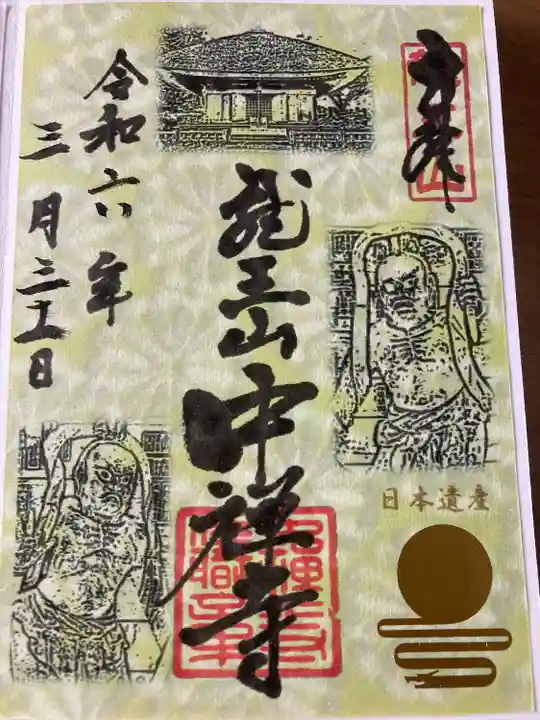 奉拝
龍王山中禅寺
令和六年
三月三十一日
日本遺産